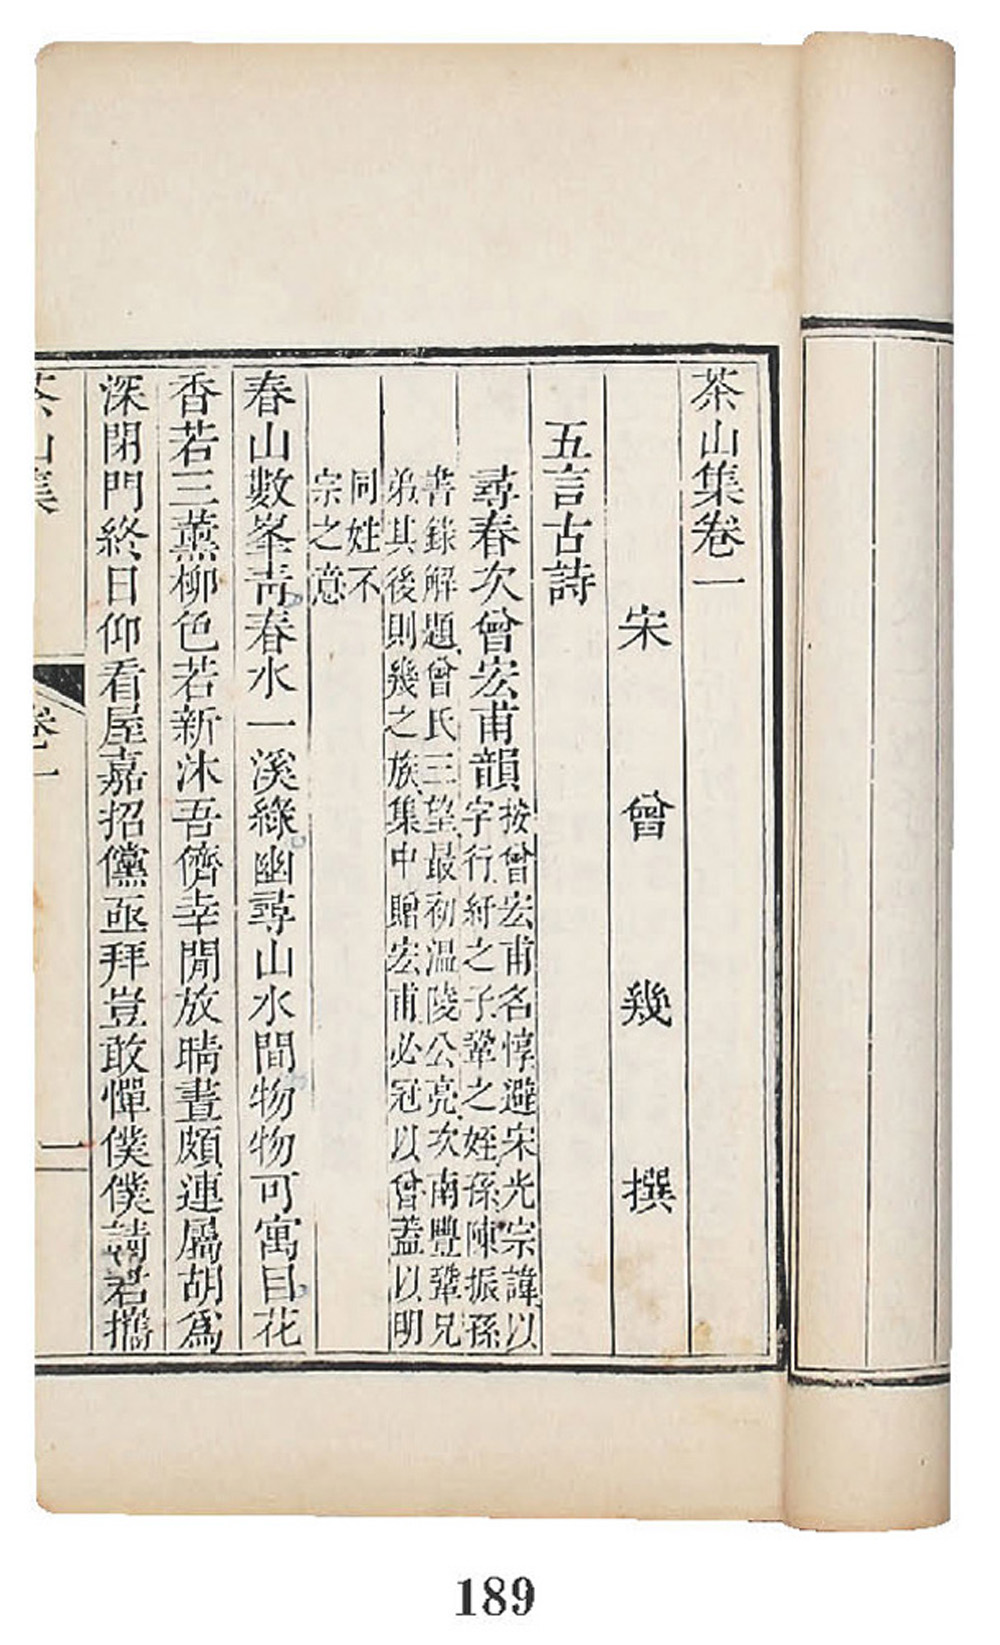 茶山集卷一
宋曾幾撰
五言古詩
尋春次曾宏甫韻
按曾宏甫名惇避宋光宗諱以
字行紆之子鞏之姪孫陳振孫
書錄解題曾氏三望最初溫陵公亮次南豐鞏兄
弟其後則幾之族集中贈宏甫必冠以曾蓋以明
同姓不
宗之意
春山數峯靑春水一溪綠幽尋山水間物物可寓目花
香若三薰柳色若新沐吾儕幸閒放晴晝頗連屬胡爲
深閉門終日仰看屋嘉招儻亟拜豈敢憚僕僕請君攜
茶山集
卷一
一
189